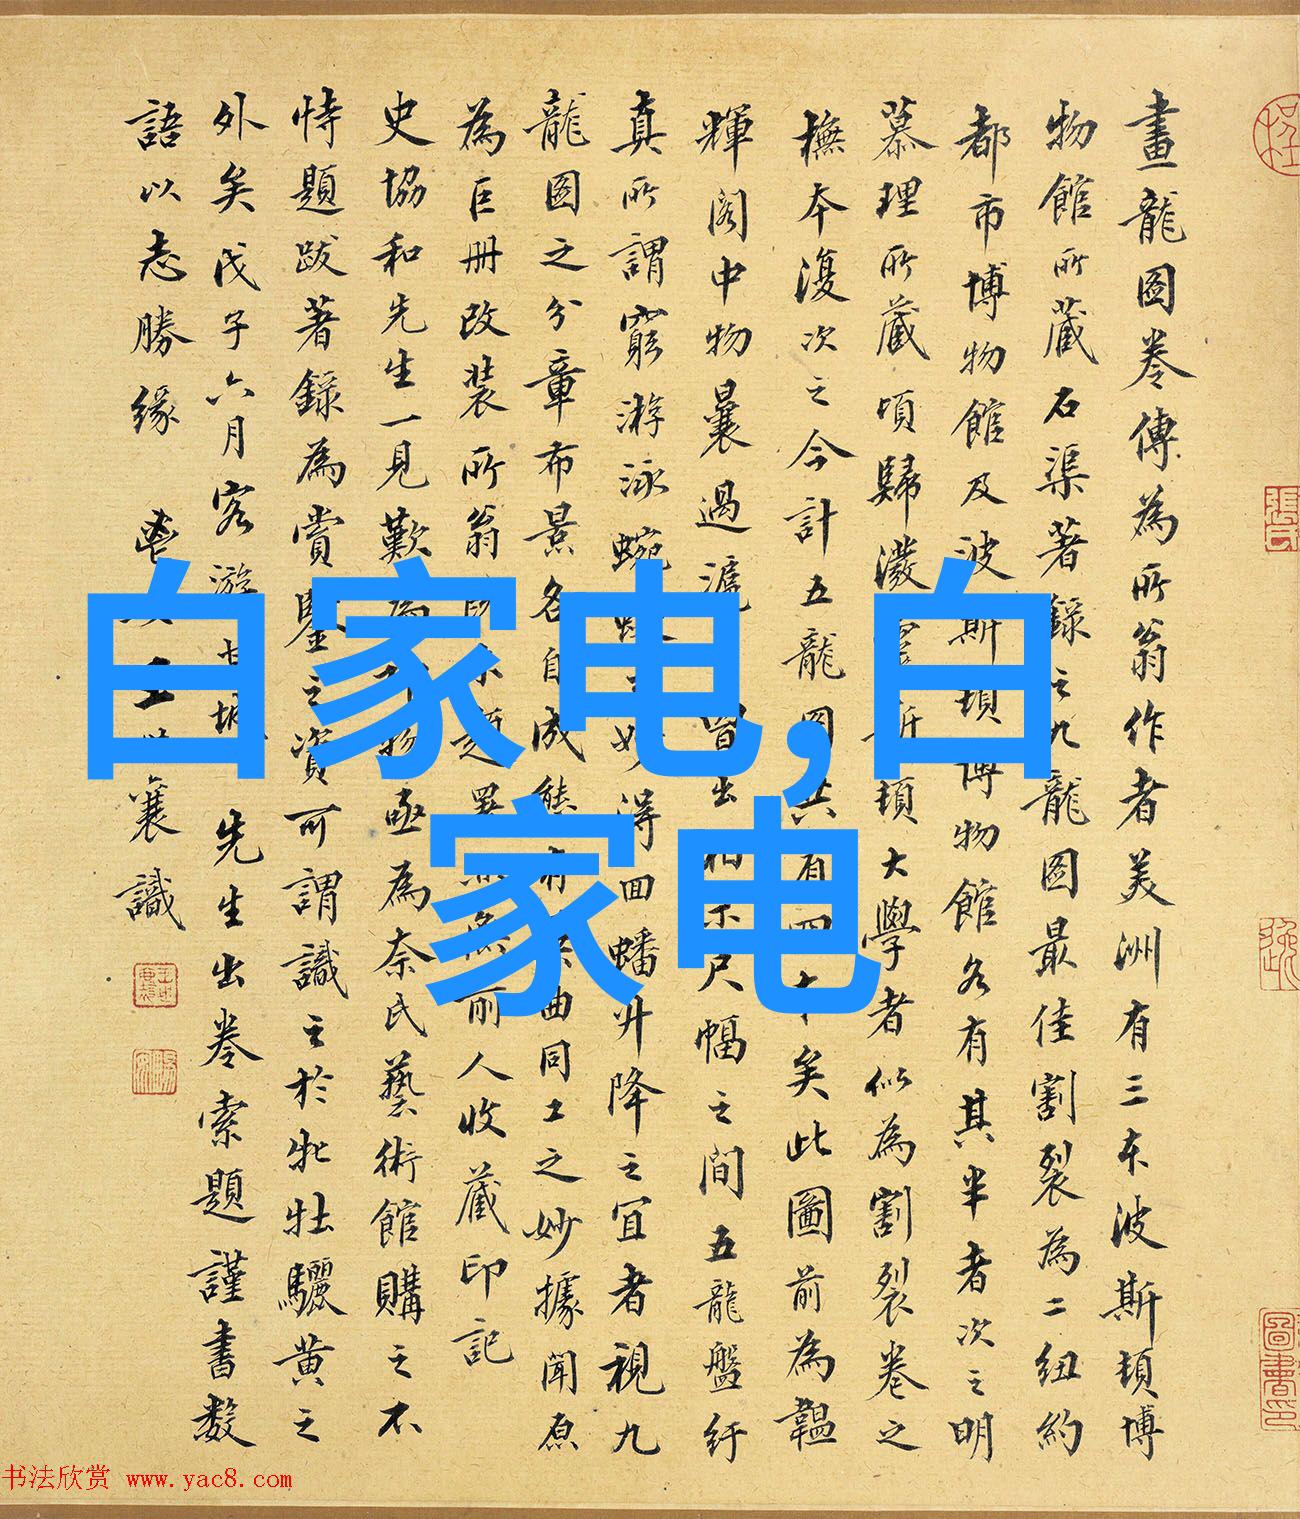 畫龍圖卷傳為所翁作者美洲有三本波斯頓博
物館所藏石渠著錄之九龍圖最佳割裂為二紐約
都市博物館及波斯頓博物館各有其半者次之明
慕理所藏頃歸潑斯頓大學者似為割裂卷之
橅本復次之今計五龍圖共有四本矣此圖前為韞
輝閣中物曩過滬曾出相示尺幅之間五龍盤紆
真所謂窮游泳蜿蜒之妙得回蟠升降之宜者視九
龍圖之分章布景各自成態有異曲同工之妙據聞原
為巨冊改裝所翁無前人收藏印記
史協和先生一見歎為物亟為奈氏藝術館購之不
恃題跋著錄為賞鑒之資可謂識之於牝牡驪黃之
外矣戊子六月客游先生出卷索題謹書數
語以志勝緣 襄識
白家电,白
家电
书法欣赏 www.yac8.com